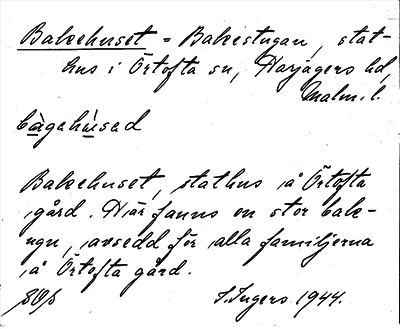 Bakehuset = Bakestugan, stat-
hus i Örtofta sn, Harjagers hd,
Malm. l.
bàgahùsad
Bakehuset, stathus å Örtofta
gård. Här fanns en stor bak-
ugn, avsedd för alla familjerna
å Örtofta gård.
I. Ingers 1944.